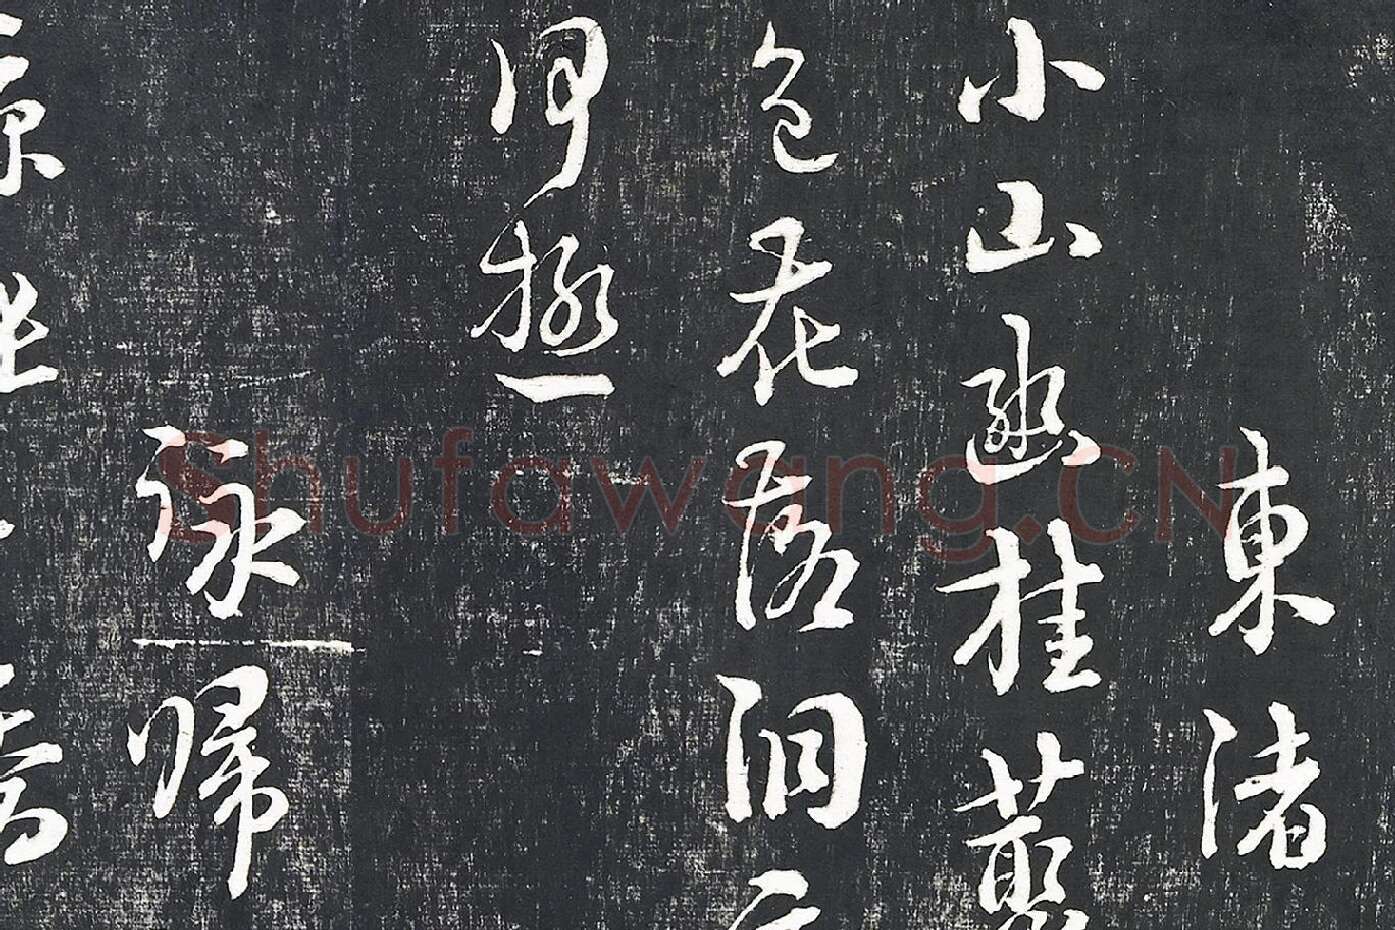 東渚
小山幽桂藂
色花落洞
何極
詠歸